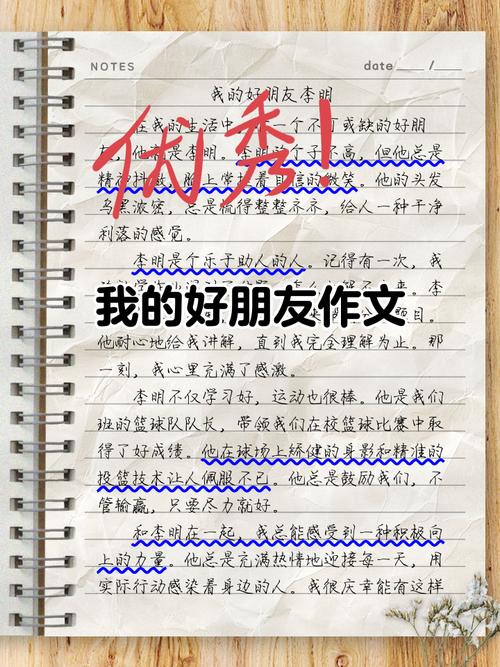 NOTES
date /
我的好朋友李明
在我的生活中 一个不可或缺的好朋
他 是李明。李明 个子不高,但他总是
精神 脸上常 着自信的微笑。他的头发
乌黑浓密,总是梳得整整齐齐,给人一种干净
利落的感觉。
优秀!
李明是个乐于助人的人。记得有一次,我
李
我的好朋友作文
题目。
他耐心地给我讲解,直到我完全理解为止。那
一刻,我心里充满了感激。
李明不仅学习好,运动也很棒。他是我们
班的篮球队队长,带领我们在校篮球比赛中取
得了好成绩。他在球场上矫健的身影和精准的
投篮技术让人佩服不已。他总是鼓励我们,不
管输赢,只要尽力就好。
和李明在一起,我总能感受到一种积极向
上的力量。他总是充满热情地迎接每一天,用
实际行动感染着身边的人。我很庆幸能有这样